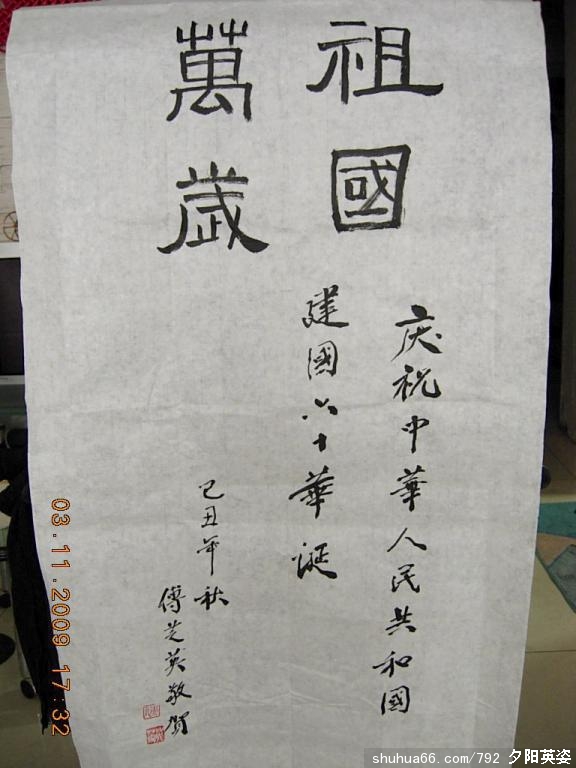 祖國
萬歲
庆祝中華人民共和國
建國六十華诞
己丑年秋
傅芝英敬贺
03.11.2009 17:32
shuhua66.com/792 夕阳英姿